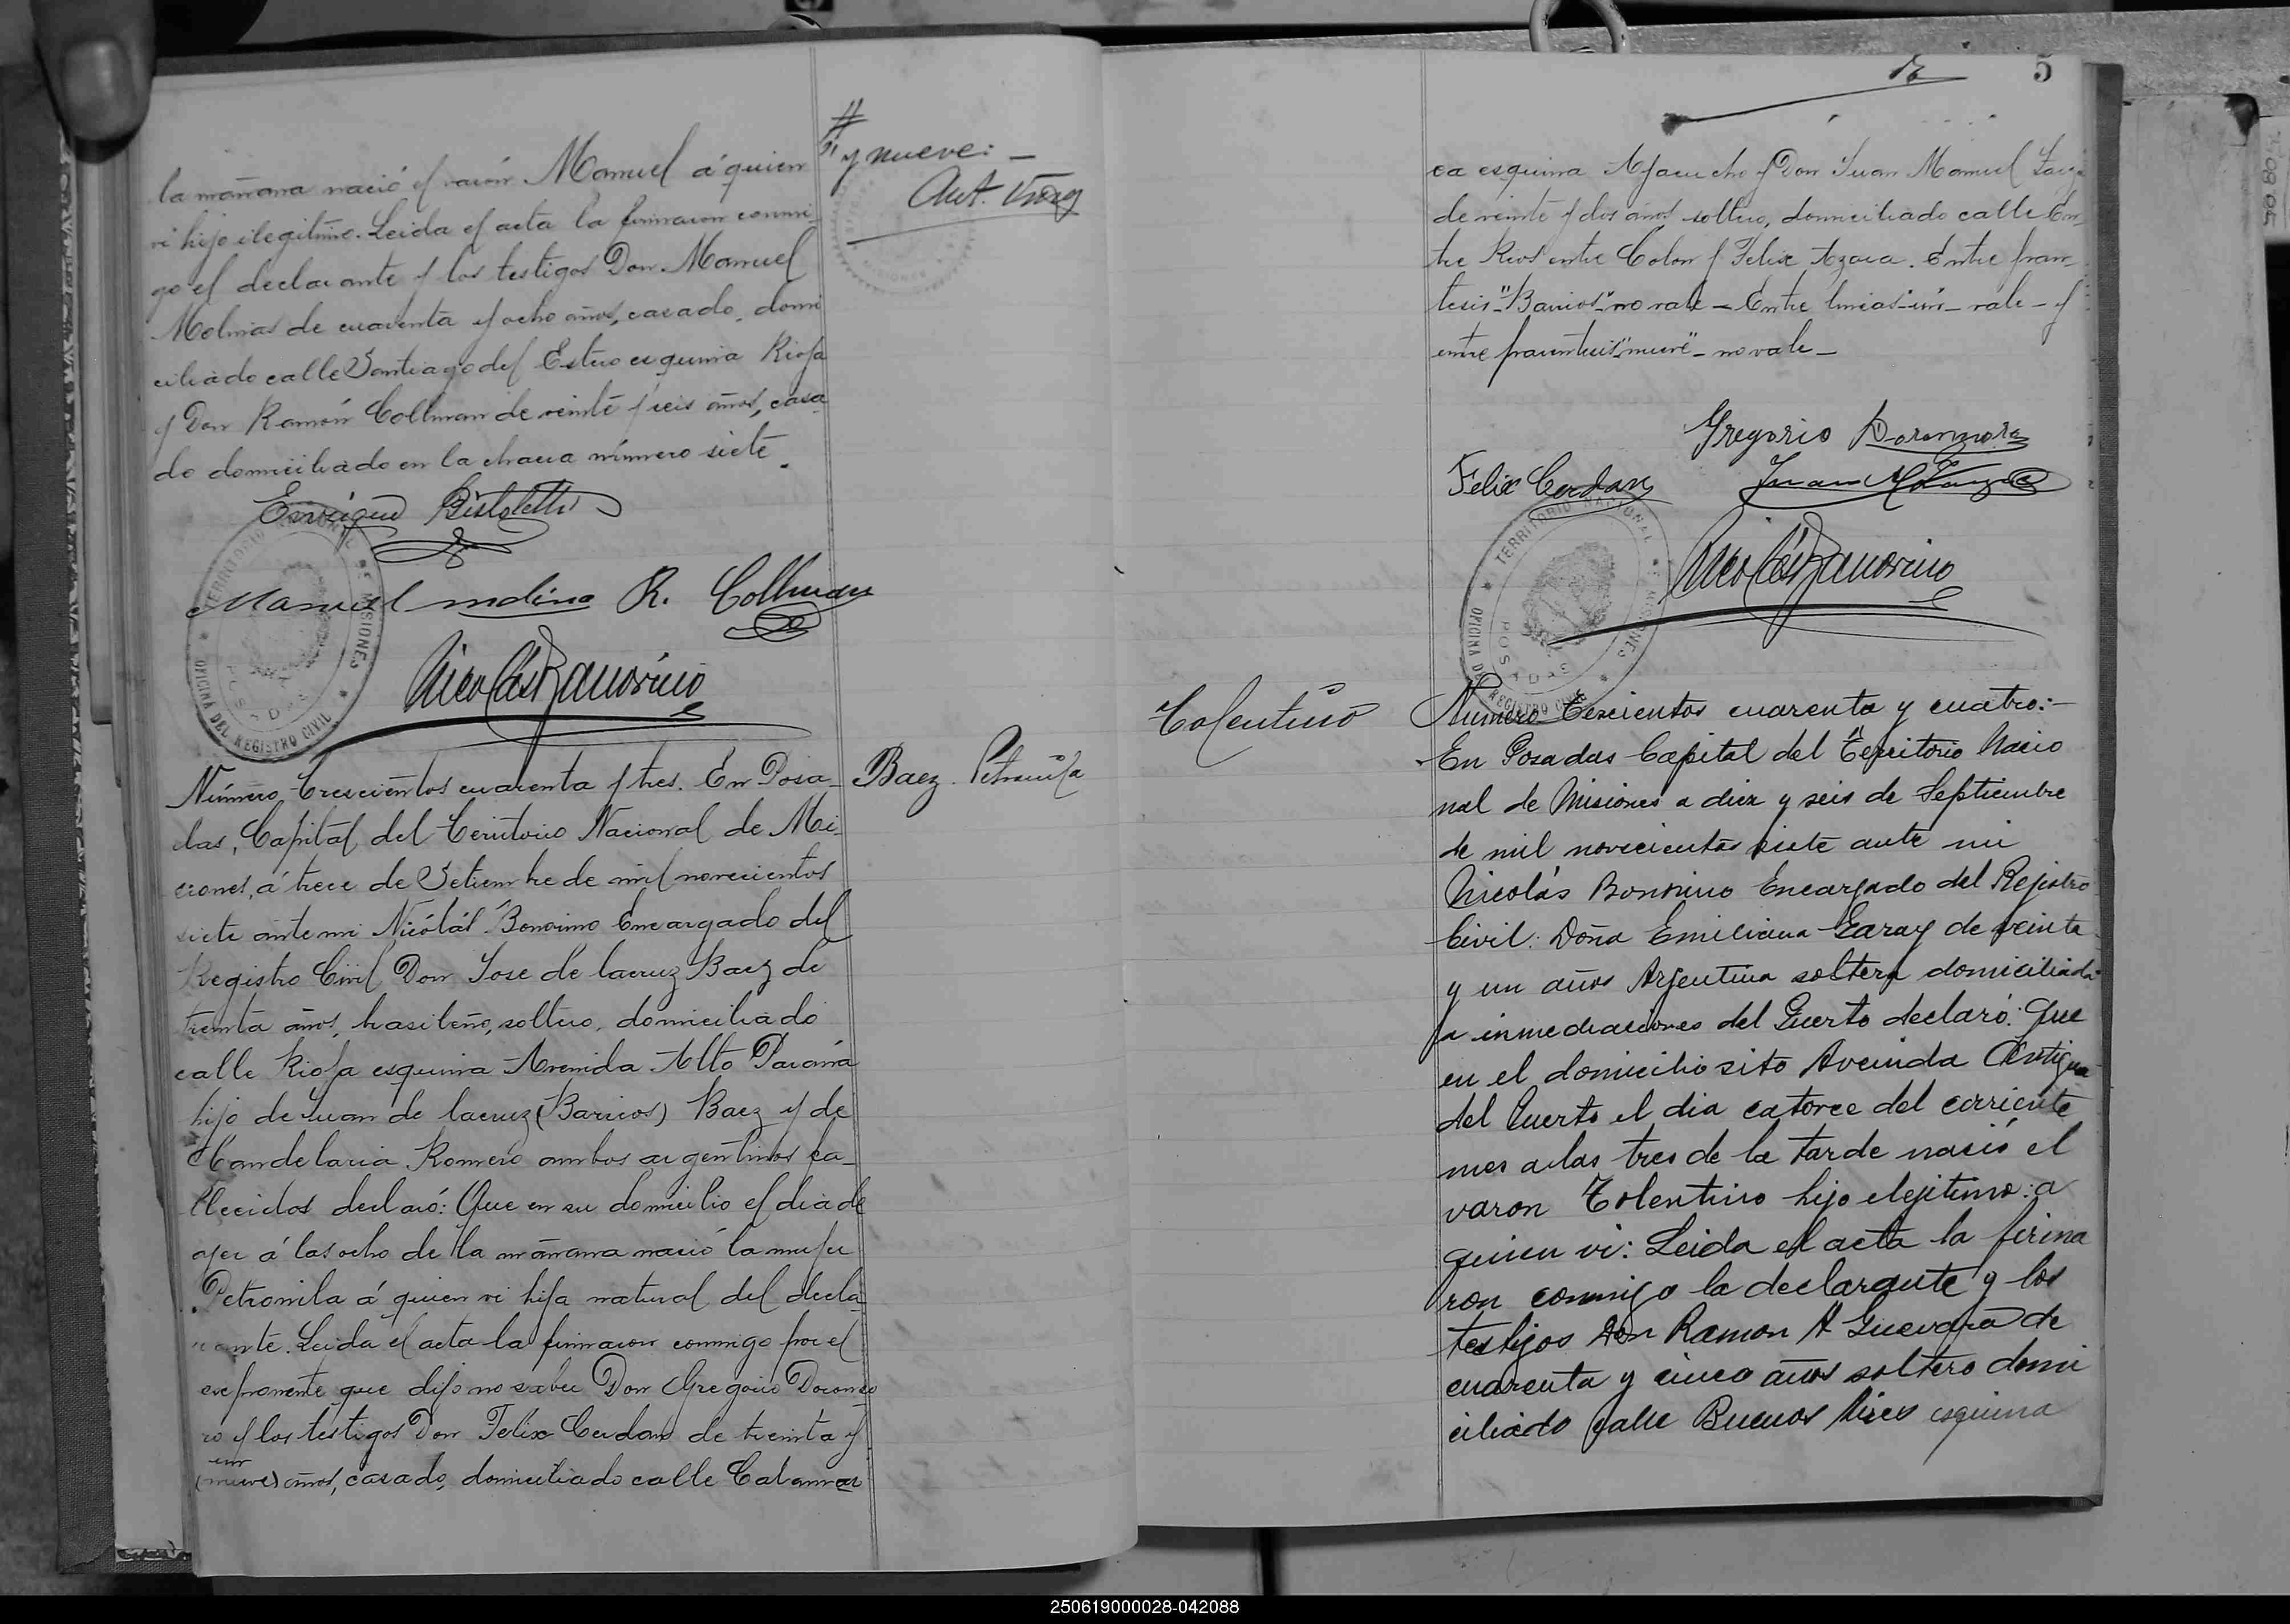 la mañana nació el varón Manuel á quien
vi hijo ilegitimo. Leida el acta la firmaron conmi-
go el declarante y los testigos Don Manuel
Molinas de cuarenta y ocho años, casado, domi
ciliado calle Santiago del Estero esquina Rioja
y Don Ramón Collman de veinte y seis años, casa
do domiciliado en la chacra número siete.
y nueve: -
Enrique Bistoletti
Manuel molina R. Collman
Nicolás Bonorino
TERRITORIO NACIONAL DE MISIONES
OFICINA DEL REGISTRO CIVIL
POSADAS
Número trescientos cuarenta y tres. En Posa-
das, Capital del Territorio Nacional de Mi-
ciones, á trece de Setiembre de mil novecientos
siete ante mi Nicólás Bonorino Encargado del
Registro Civil Don Jose de lacruz Baez de
treinta años, brasileño, soltero, domiciliado
calle Rioja esquina Avenida Alto Paraná
hijo de Juan de lacruz (Barrios) Baez y de
Candelaria Romero ambos argentinos fa-
llecidos declaró: Que en su domicilio el dia de
ayer á las ocho de la mañana nació la mujer
Petronila á quien vi hija natural del decla-
rante. Leida el acta la firmaron conmigo por el
exponente que dijo no saber Don Gregorio
y los testigos Don Felix Cerdan de treinta y
un
(nueve) años, casado, domiciliado calle Catamar
Baez Petronila
5
ca esquina Ayacucho y Don Juan Manuel
de veinte y dos años soltero, domiciliado calle En-
tre Rios entre Colon y Felix Azara. Entre paren-
tesis "Barrios" no vale - Entre lineas - un - vale - y
entre parentesis "nueve" - no vale -
Gregorio
Felix Cerdan Juan M
Nicolás Bonorino
TERRITORIO NACIONAL DE MISIONES
OFICINA DEL REGISTRO CIVIL
POSADAS
Tolentino
Numero Trescientos cuarenta y cuatro: -
En Posadas Capital del Territorio Nacio
nal de Misiones a diez y seis de Septiembre
de mil novecientos siete ante mi
Nicolás Bonorino Encargado del Rejistro
Civil: Doña Emiliana Garay de veinte
y un años Arjentina soltera domiciliada
a inmediaciones del Puerto declaró: Que
en el domicilio sito Avenida Antigua
del Puerto el dia catorce del corriente
mes a las tres de la tarde nació el
varon Tolentino hijo elejitimo: a
quien vi: Leida el acta la firma
ron conmigo la declarante y los
testijos Don Ramon A Guevara de
cuarenta y cinco años soltero domi
ciliado calle Buenos Aires esquina
250619000028-042088